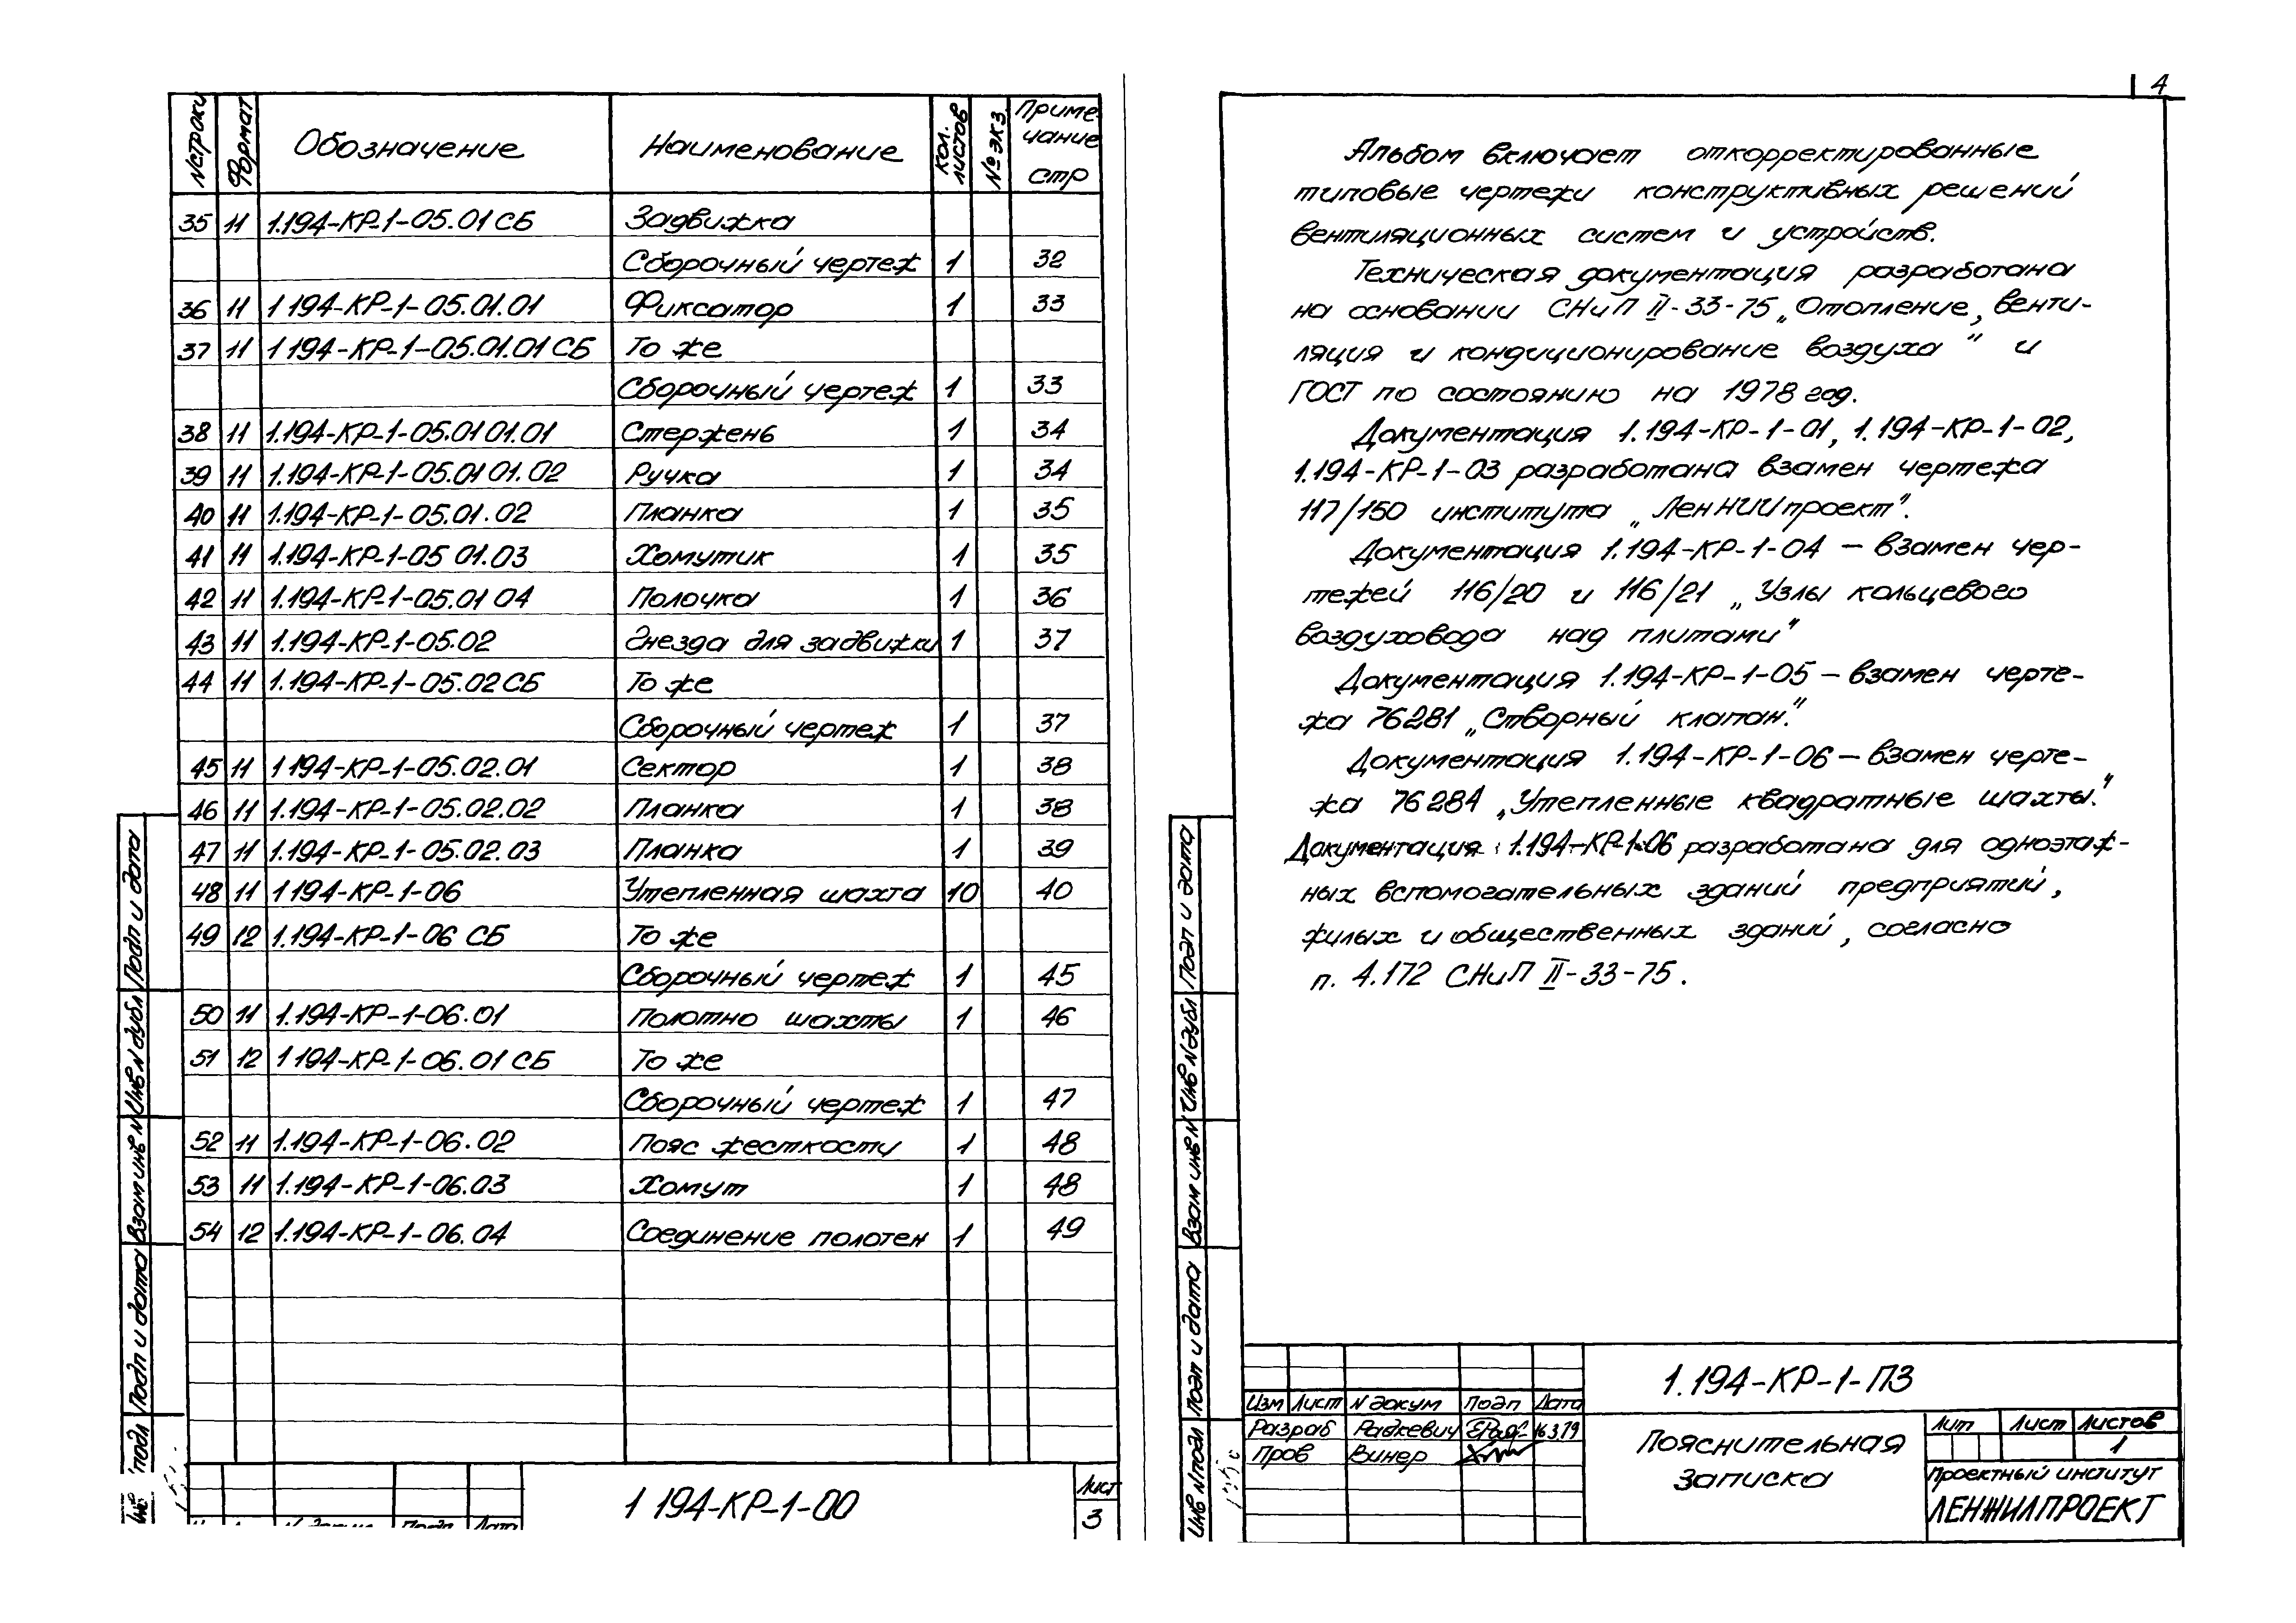 N строки Формат Обозначение Наименование Кол. листов № экз. Приме-
чание
стр
35 11 1.194-КР-1-05.01 СБ Задвижка
Сборочный чертеж 1 32
36 11 1 194-КР-1-05.01.01 Фиксатор 1 33
37 11 1 194-КР-1-05.01.01 СБ То же
Сборочный чертеж 1 33
38 11 1.194-КР-1-05.01 01.01 Стержень 1 34
39 11 1.194-КР-1-05.01 01.02 Ручка 1 34
40 11 1.194-КР-1-05.01.02 Планка 1 35
41 11 1.194-КР-1-05 01.03 Хомутик 1 35
42 11 1.194-КР-1-05.01 04 Полочка 1 36
43 11 1.194-КР-1-05.02 Гнезда для задвижки 1 37
44 11 1.194-КР-1-05.02 СБ То же
Сборочный чертеж 1 37
45 11 1 194-КР-1-05.02.01 Сектор 1 38
46 11 1.194-КР-1-05.02.02 Планка 1 38
47 11 1.194-КР-1-05.02.03 Планка 1 39
48 11 1 194-КР-1-06 Утепленная шахта 10 40
49 12 1.194-КР-1-06 СБ То же
Сборочный чертеж 1 45
50 11 1.194-КР-1-06.01 Полотно шахты 1 46
51 12 1 194-КР-1-06.01 СБ То же
Сборочный чертеж 1 47
52 11 1.194-КР-1-06.02 Пояс жесткости 1 48
53 11 1.194-КР-1-06.03 Хомут 1 48
54 12 1.194-КР-1-06.04 Соединение полотен 1 49
Подп и дата
Инв N дубл
Взам инв N
Подп и дата
Инв подл
1 194-КР-1-00
Лист
3
4
Альбом включает откорректированные
типовые чертежи конструктивных решений
вентиляционных систем и устройств.
Техническая документация разработана
на основании СНиП II-33-75 „Отопление, венти-
ляция и кондиционирование воздуха" и
ГОСТ по состоянию на 1978 год.
Документация 1.194-КР-1-01, 1.194-КР-1-02,
1.194-КР-1-03 разработана взамен чертежа
117/150 института „ЛенНИИпроект".
Документация 1.194-КР-1-04 – взамен чер-
тежей 116/20 и 116/21 „Узлы кольцевого
воздуховода над плитами"
Документация 1.194-КР-1-05 – взамен черте-
жа 76281 „Створный клапан."
Документация 1.194-КР-1-06 – взамен черте-
жа 76284 „Утепленные квадратные шахты."
Документация 1.194-КР-1-06 разработана для одноэтаж-
ных вспомогательных зданий предприятий,
жилых и общественных зданий, согласно
п. 4.172 СНиП II-33-75.
Подп и дата
Инв N дубл
Взам инв N
Подп и дата
Инв N подл
1.194-КР-1-ПЗ
Изм Лист N докум Подп Дата
Разраб Радкевич 16.3.79
Пров Винер
Пояснительная
записка
Лит Лист Листов
1
Проектный институт
ЛЕНЖИЛПРОЕКТ